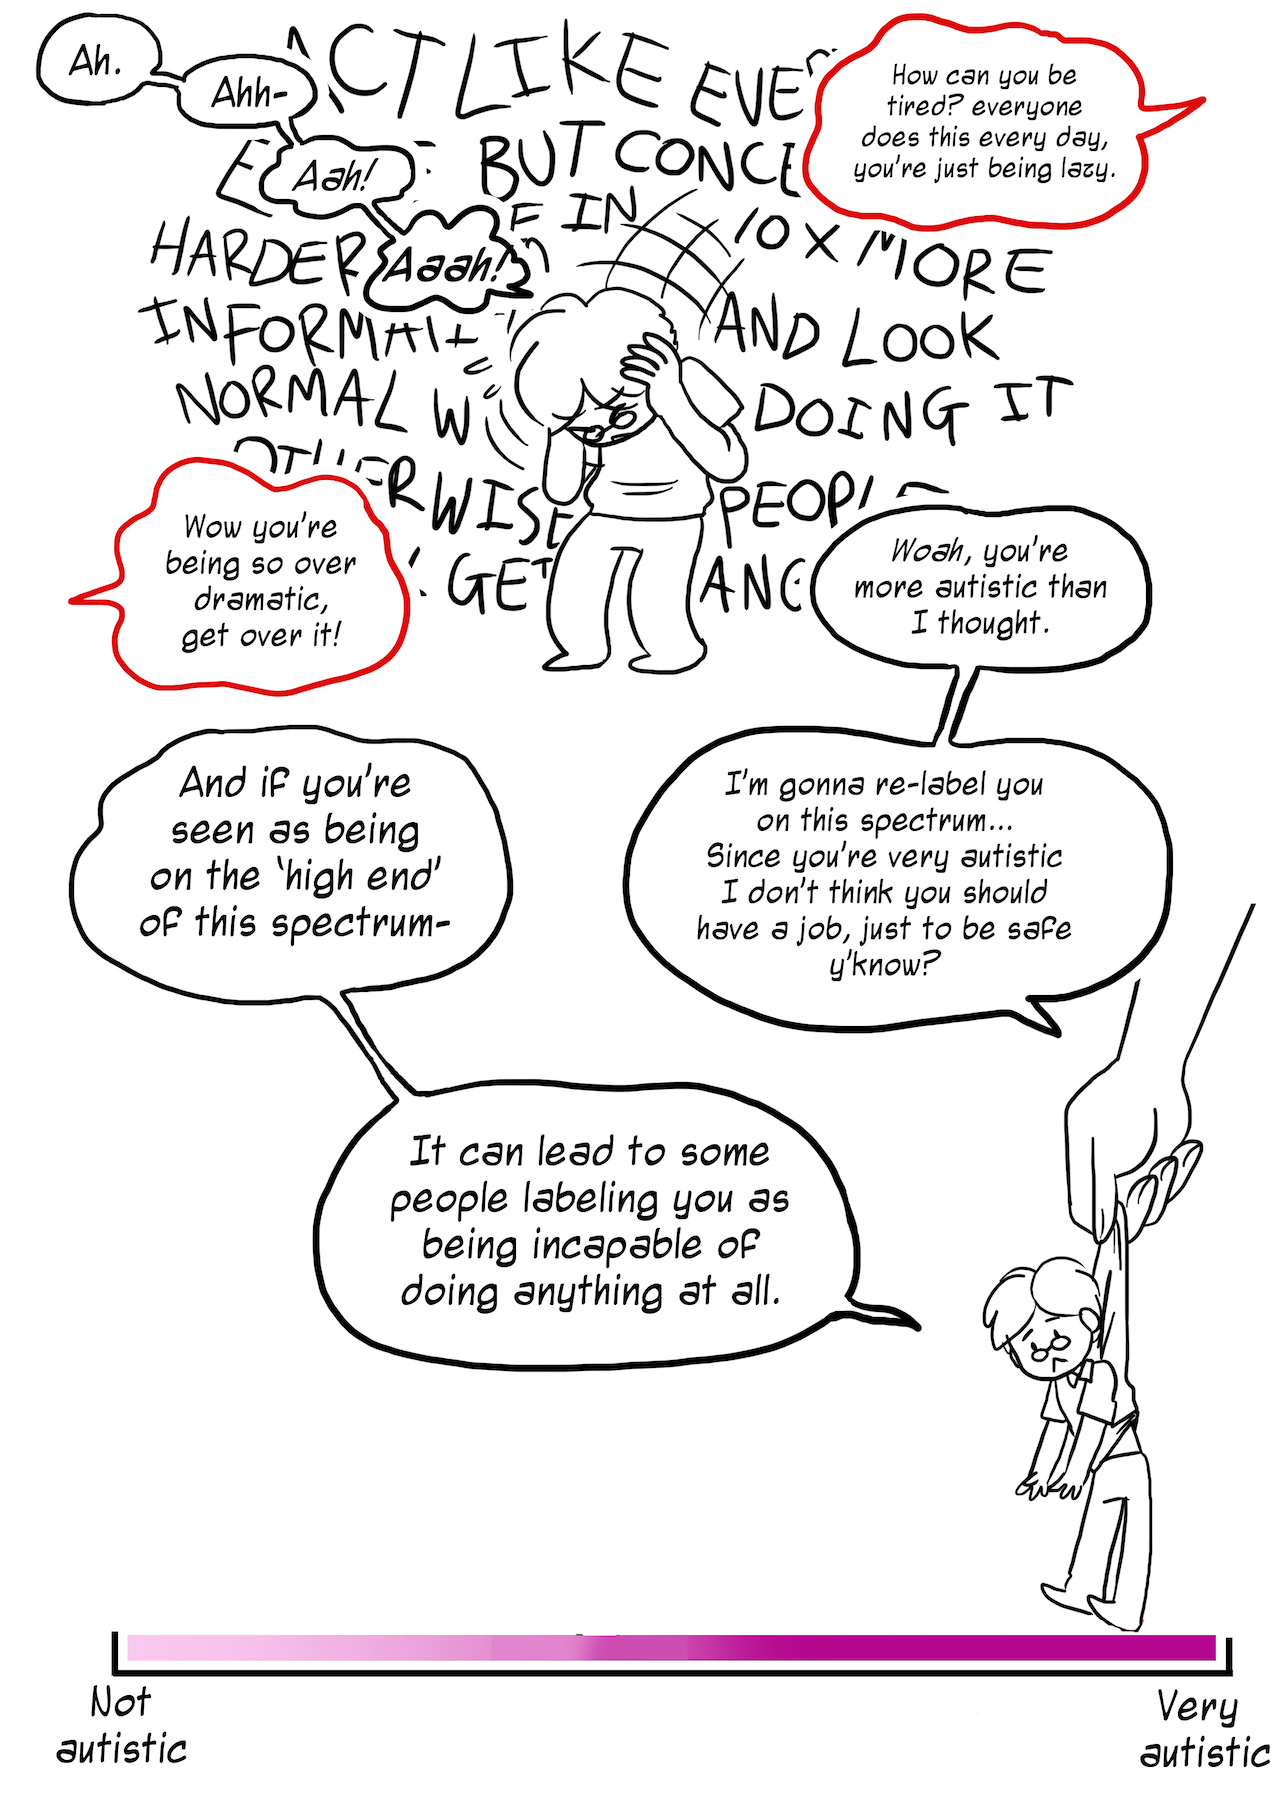 Ah.
Ahh-
Aah!
Aaah!
ACT LIKE
BUT
HARDER IN 10 X MORE
AND LOOK
NORMAL DOING IT
GET
How can you be
tired? everyone
does this every day,
you're just being lazy.
Wow you're
being so over
dramatic,
get over it!
Woah, you're
more autistic than
I thought.
I'm gonna re-label you
on this spectrum...
Since you're very autistic
I don't think you should
have a job, just to be safe
y'know?
And if you're
seen as being
on the 'high end'
of this spectrum-
It can lead to some
people labeling you as
being incapable of
doing anything at all.
Not
autistic
Very
autistic